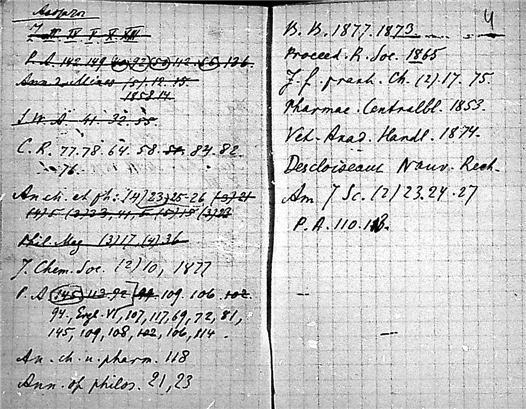 J. II IV V X XIII
P. A 142 149 92 50 42 56 136
Ann d. Mines (5) 12. 15
1858. 14
S. W. A 41. 32. 55
C. R. 77. 78. 64. 58. 84. 82.
76.
An. ch. et ph: (4) 23, 25-26 (3) 21
(4) 5 (3) 23, 41, 5 (5) 15 (3) 23
Phil. Mag (3) 17, (4) 36
J. Chem. Soc. (2) 10, 1877
P. A 145 113. 92 109. 106. 102
94, Ergb. VI, 107, 117, 69, 72, 81,
145, 109, 108, 102, 106, 114.
An. ch. u. pharm. 118
Ann. of philos. 21, 23
4
B. B. 1877. 1873
Proceed. R. Soc. 1865
J. f. prakt. Ch. (2) 17. 75.
Pharmac. Centralbl. 1853.
Vet. Akad. Handl. 1874.
Descloiseaux Nouv. Rech.
Am. J Sc. (2) 23. 24. 27
P. A. 110.